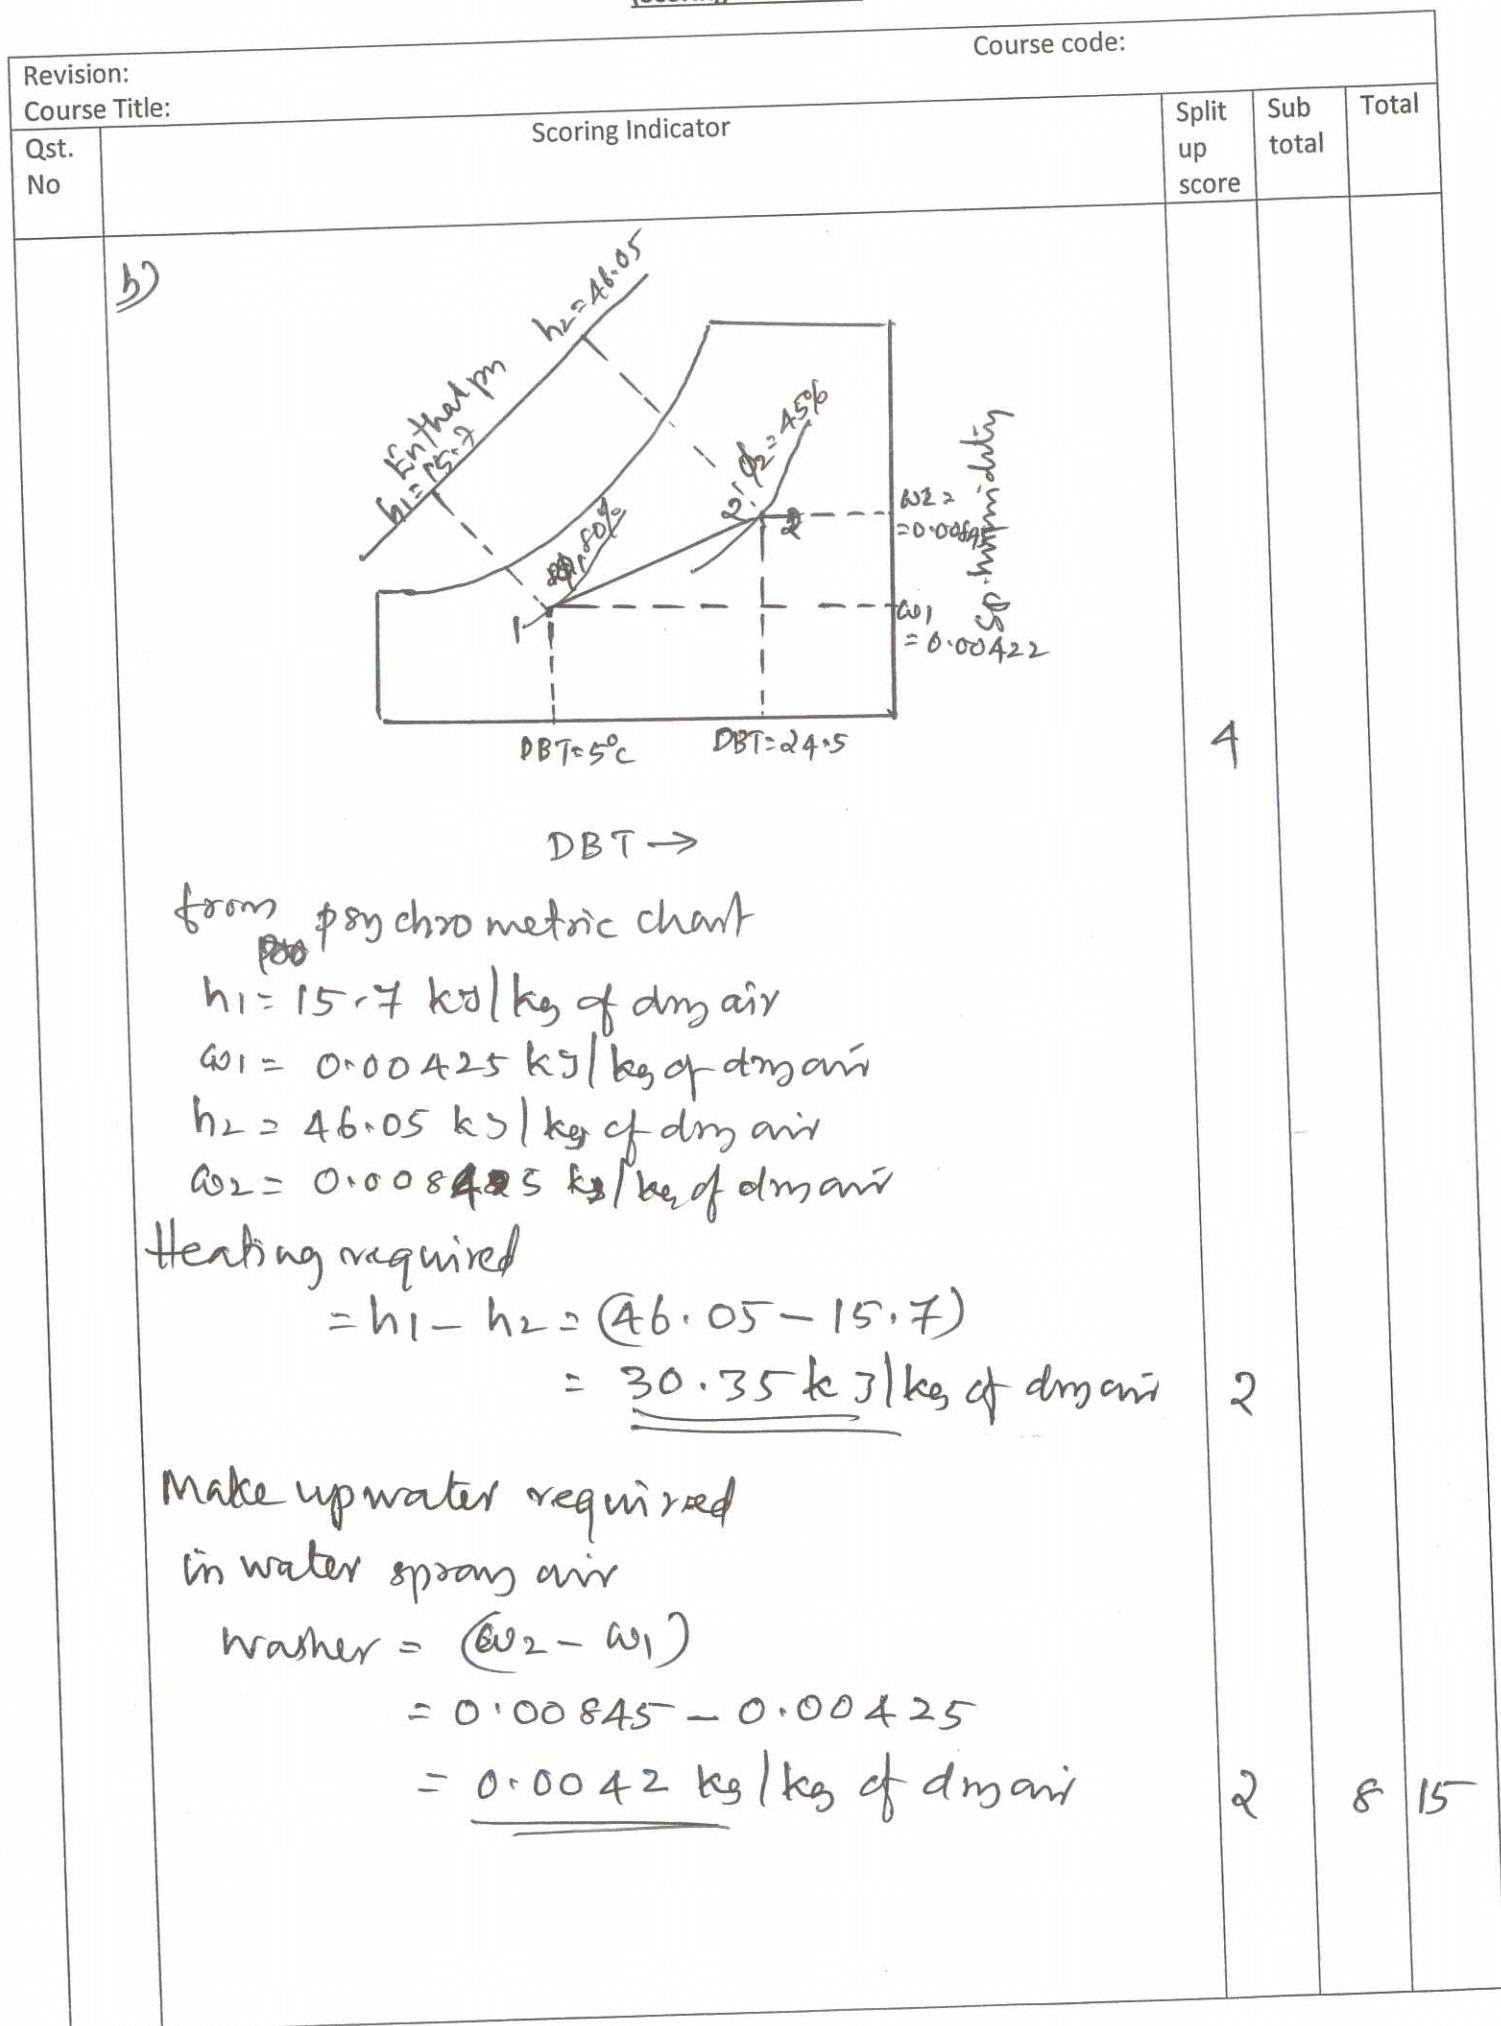 Revision:
Course code:
Course Title:
Qst. No
Scoring Indicator
Split up score
Sub total
Total
b)
Enthalpy
h1 = 15.7
h2 = 46.05
80%
ϕ2 = 45%
1
2'
2
ω2 =
ω1
= 0.00422
Sp. humidity
DBT = 5°C
DBT = 24.5
4
DBT →
from psychrometric chart
h1 = 15.7 kJ/kg of dry air
ω1 = 0.00425 kg/kg of dry air
h2 = 46.05 kJ/kg of dry air
ω2 = kg/kg of dry air
Heating required
= h1 - h2 = (46.05 - 15.7)
= 30.35 kJ/kg of dry air
2
Make up water required
in water spray air
washer = (ω2 - ω1)
= 0.00845 - 0.00425
= 0.0042 kg/kg of dry air
2
8
15